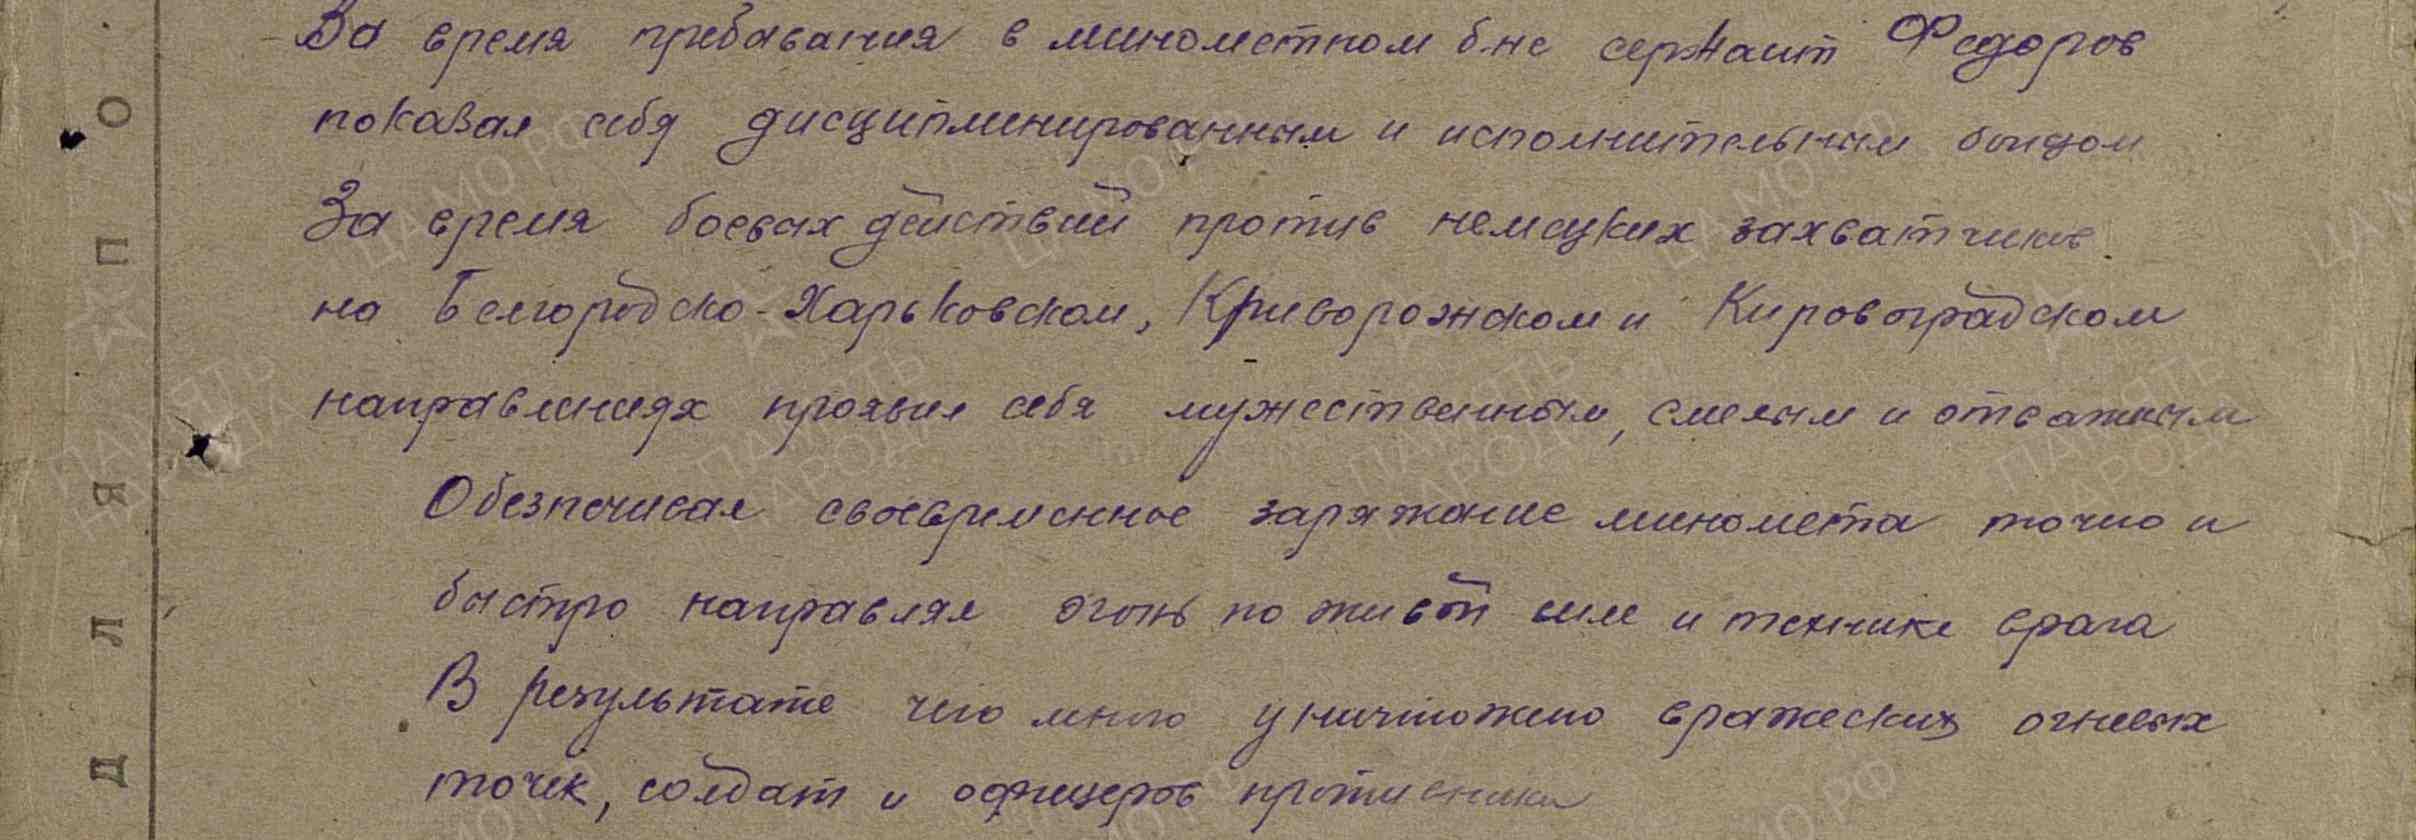 За время пребавания в минометном б-не сержант Федоров
показал себя дисциплинированным и исполнительным бойцом
За время боевых действий против немецких захватчиков
на Белгородско-Харьковском, Криворожском и Кировоградском
направлениях проявил себя мужественным, смелым и отважным
Обезпечивал своевременное заряжание миномета точно и
быстро направлял огонь по живой силе и технике врага
В результате чего много уничтожено вражеских огневых
точек, солдат и офицеров противника
ДЛЯ ПО
ЦАМО РФ
ПАМЯТЬ НАРОДА